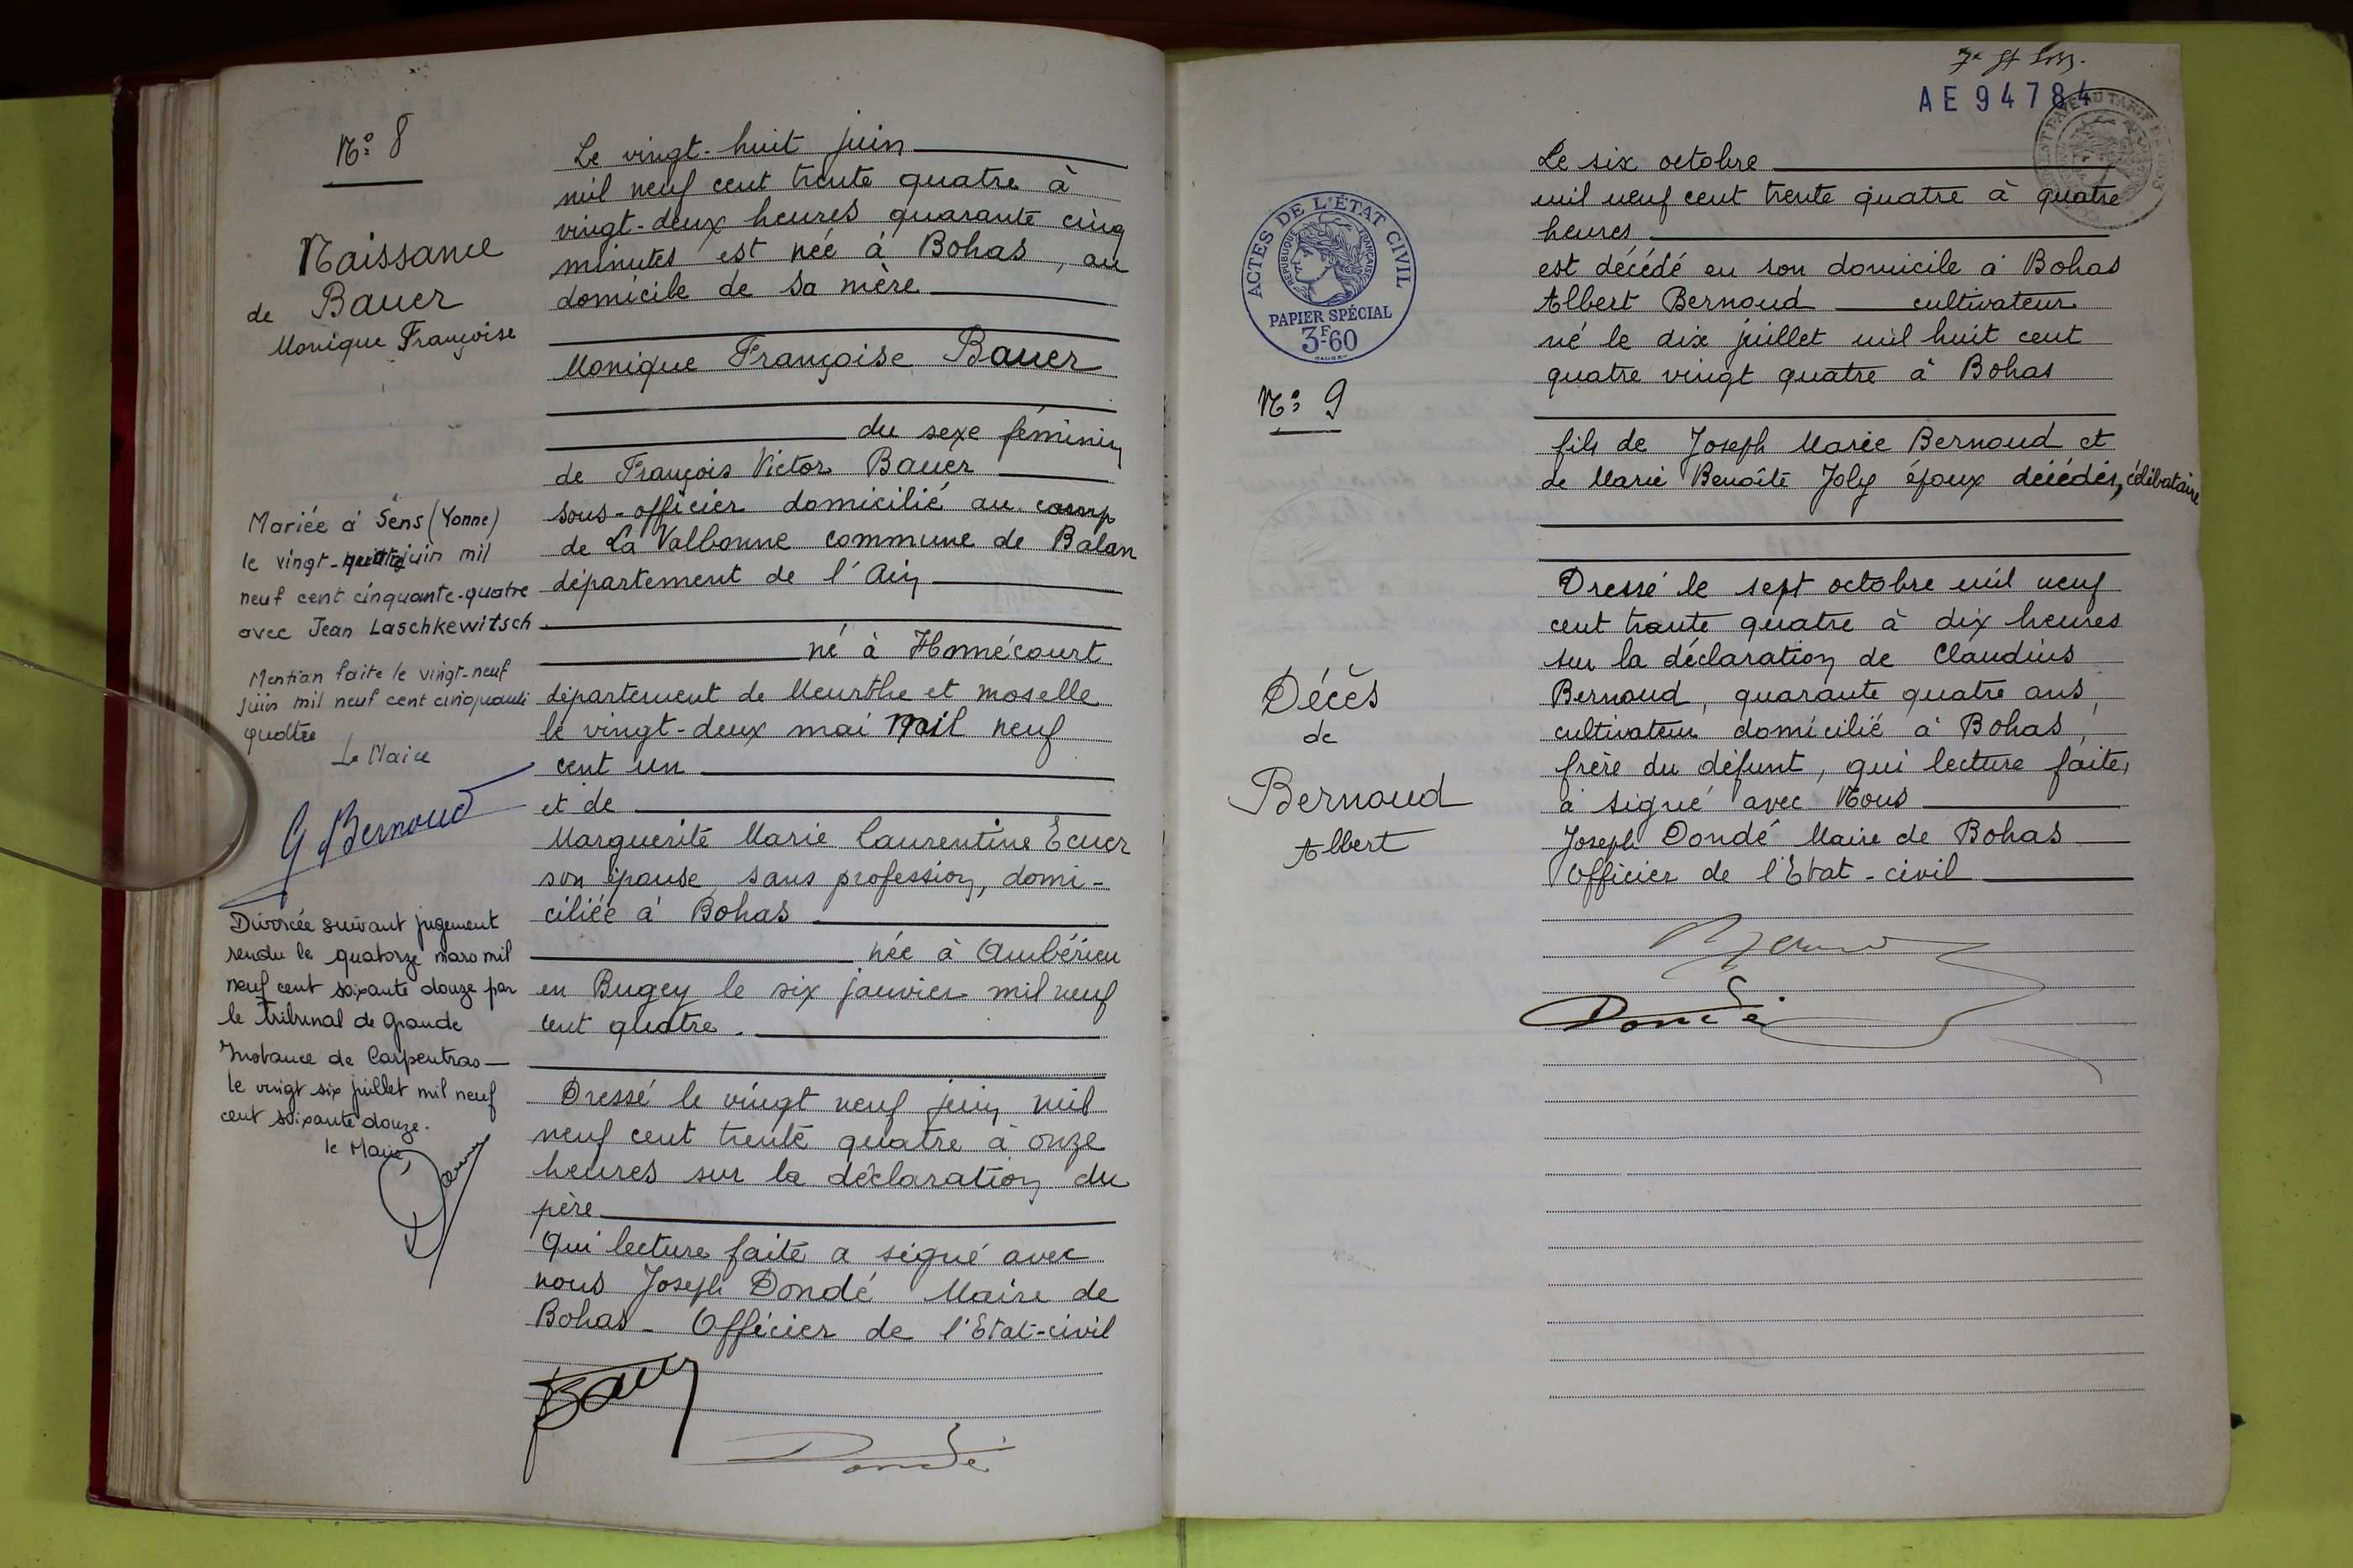 N° 8
Naissance
de Bauer
Monique Françoise
Mariée à Sens (Yonne)
le vingt- juin mil
neuf cent cinquante-quatre
avec Jean Laschkewitsch
Mention faite le vingt-neuf
juin mil neuf cent cinquante
quatre
Le Maire
G Bernoud
Divorcée suivant jugement
rendu le quatorze mars mil
neuf cent soixante douze par
le Tribunal de Grande
Instance de Carpentras —
le vingt six juillet mil neuf
cent soixante douze.
le Maire
Le vingt-huit juin
mil neuf cent trente quatre à
vingt-deux heures quarante cinq
minutes est née à Bohas, au
domicile de sa mère
Monique Françoise Bauer
du sexe féminin
de François Victor Bauer
sous-officier domicilié au camp
de La Valbonne commune de Balan
département de l'Ain
né à Homécourt
département de Meurthe et moselle
le vingt-deux mai mil neuf
cent un
et de
Marguerite Marie Laurentine Ecuer
son épouse, sans profession, domi-
ciliée à Bohas
née à Ambérieu
en Bugey le six janvier mil neuf
cent quatre.
Dressé le vingt neuf juin mil
neuf cent trente quatre à onze
heures sur la déclaration du
père
Qui lecture faite a signé avec
nous Joseph Dondé Maire de
Bohas - Officier de l'Etat-civil
Bauer
Dondé
AE 94784
ACTES DE L'ÉTAT CIVIL
RÉPUBLIQUE FRANÇAISE
PAPIER SPÉCIAL
3F.60
N° 9
Décès
de
Bernoud
Albert
Le six octobre
mil neuf cent trente quatre à quatre
heures
est décédé en son domicile à Bohas
Albert Bernoud cultivateur
né le dix juillet mil huit cent
quatre vingt quatre à Bohas
fils de Joseph Marie Bernoud et
de Marie Benoîte Joly époux décédés, célibataire
Dressé le sept octobre mil neuf
cent trente quatre à dix heures
sur la déclaration de Claudius
Bernoud, quarante quatre ans,
cultivateur domicilié à Bohas,
frère du défunt, qui lecture faite,
a signé avec Nous
Joseph Dondé Maire de Bohas
Officier de l'Etat-civil
Dondé